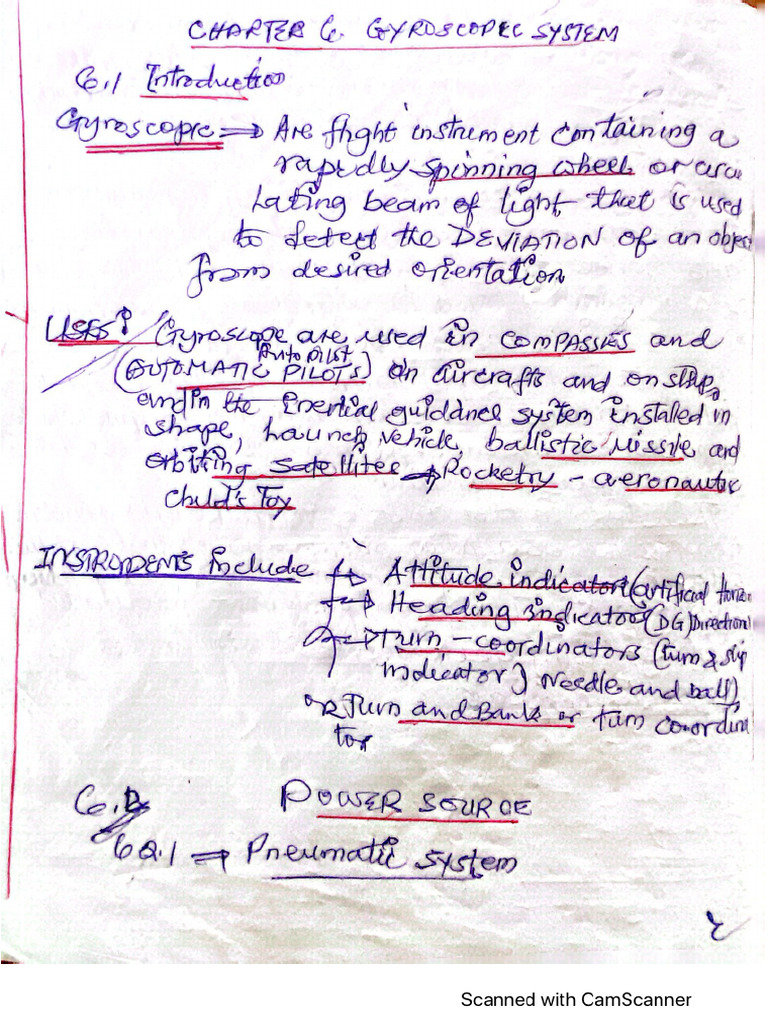 CHAPTER 6. GYROSCOPIC SYSTEM
6.1 Introduction
Gyroscopic => Are flight instrument containing a
rapidly spinning wheel or
lating beam of light that is used
to detect the DEVIATION of an objec
from desired orientation
USES: Gyroscope are used in COMPASSIES and
Auto pilot
(AUTOMATIC PILOTS) on aircrafts and on ships,
and in the Inertial guidance system installed in
shape, Launch vehicle, ballistic missile and
orbiting satellites → Rocketry - aeronautic
Child's Toy
INSTRUMENTS include → Attitude indicator (artificial horizo
→ Heading indicator (DG) Direction
→ Turn - coordinators (turn & slip
indicator) Needle and ball)
or Turn and Bank or turn co-ordina
tor
6.2 POWER SOURCE
6.2.1 => Pneumatic System
Scanned with CamScanner